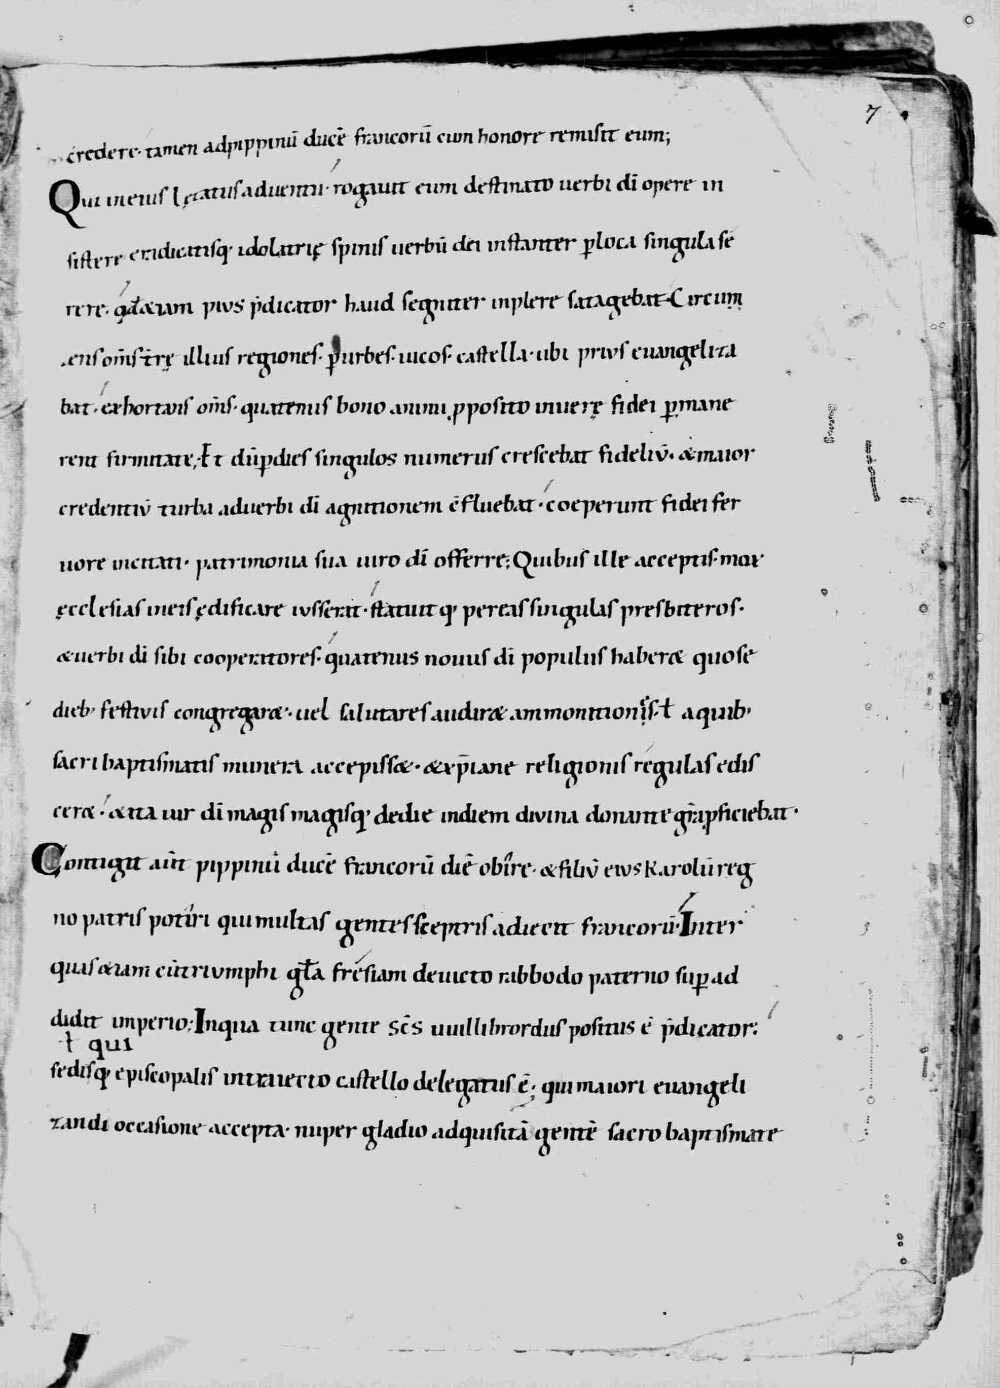 7
credere· tamen adpippinū ducē francorū cum honore remisit eum;
Qui ineius lętatus aduentu· rogauit eum destinato uerbi dī opere in
sistere eradicatisq· idolatrię spinis uerbū dei instanter ꝑ loca singula se
rere· qđ &iam pius p̄dicator haud segniter inplere satagebat· Circum
iens om̄s tr̄ę illius regiones· ꝑ urbes· uicos· castella· ubi prius euangeliza
bat· exhortans om̄s· quatenus bono animi ꝓposito in uerę fidei ꝑmane
rent firmitate; Et dū ꝑ dies singulos numerus crescebat fideliū· & maior
credentiū turba ad uerbi dī agnitionem c̄fluebat· coeperunt fidei fer
uore incitati· patrimonia sua uiro dī offerre; Quibus ille acceptis· mox
ęcclesias in eis ędificare iusserat· statuitq· per eas singulas presbiteros·
& uerbi dī sibi cooperatores· quatenus nouus dī populus haber& quo se
dieb· festiuis congregar&· uel salutares audir& ammonitionis· ł a quib·
sacri baptismatis munera accepiss&· & xp̄iane religionis regulas edis
cer&· & ita uir dī magis magisq· de die in diem diuina donante gr̄a ꝓficiebat·
Contigit aūt pippinū ducē francorū diē obire· & filiū eius karolū reg
no patris potiri qui multas gentes sceptris adiecit francorū· Inter
quas &iam cū triumphi gl̄a fresiam deuicto rabbodo paterno suꝑad
didit imperio; In qua tunc gente sc̄s uuillibrordus positus ē p̄dicator;
ł qui
sedisq· episcopalis in traiecto castello delegatus ē; qui maiori euangeli
zandi occasione accepta· nuper gladio adquisitā gentē sacro baptismate